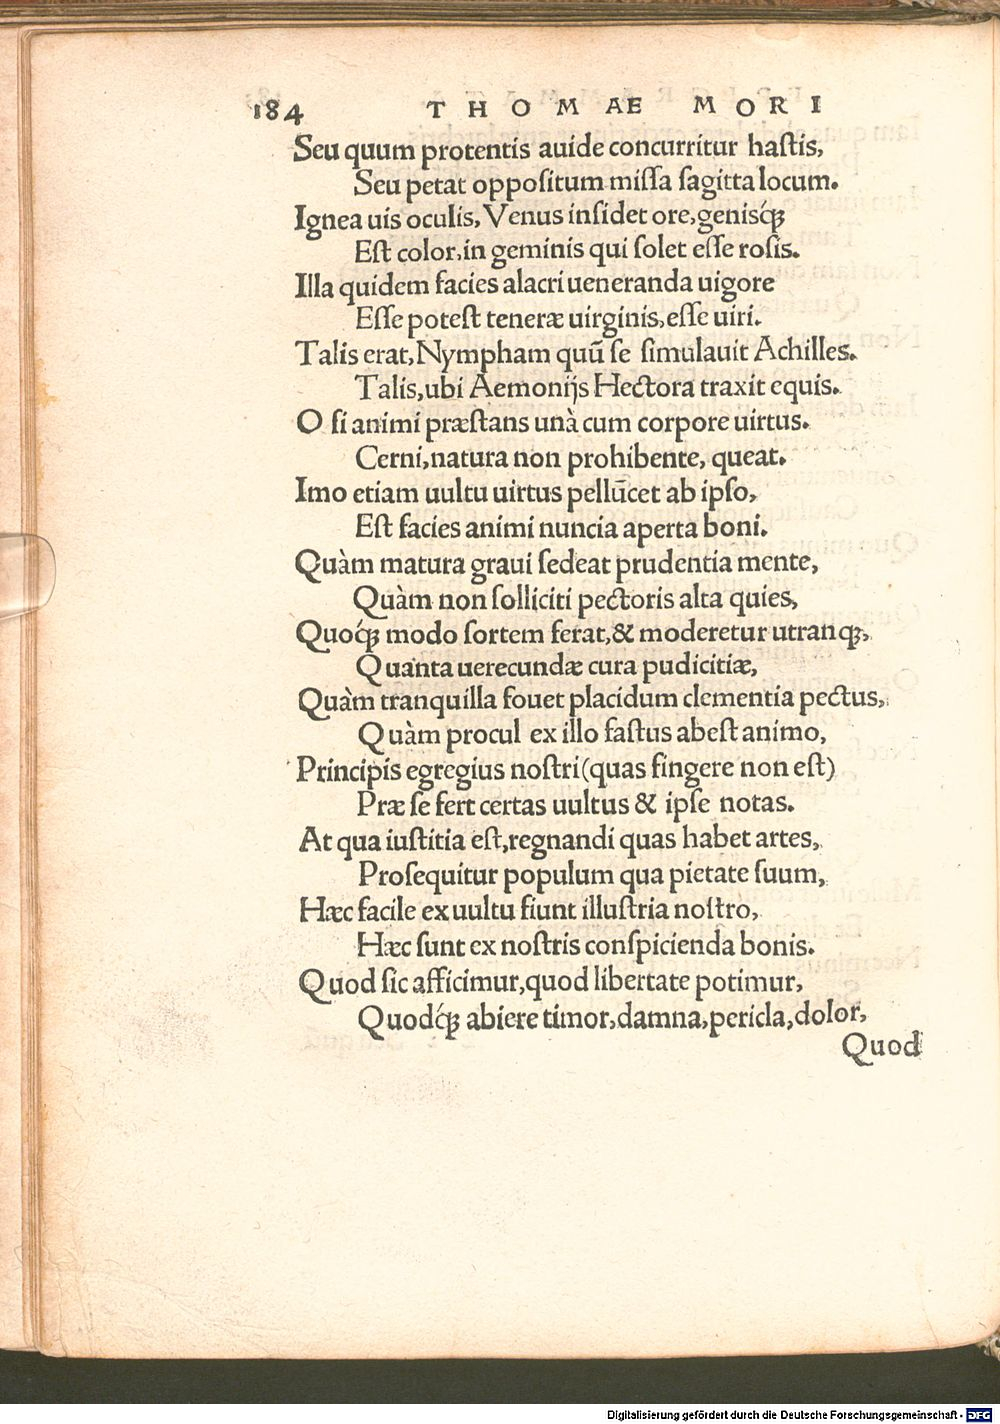 184 THOMAE MORI
Seu quum protentis auide concurritur haſtis,
Seu petat oppoſitum miſſa ſagitta locum.
Ignea uis oculis, Venus inſidet ore, geniſq́ꝫ
Eſt color, in geminis qui ſolet eſſe roſis.
Illa quidem facies alacri ueneranda uigore
Eſſe poteſt teneræ uirginis, eſſe uiri.
Talis erat, Nympham quū ſe ſimulauit Achilles.
Talis, ubi Aemonijs Hectora traxit equis.
O ſi animi præſtans unà cum corpore uirtus.
Cerni, natura non prohibente, queat.
Imo etiam uultu uirtus pellūcet ab ipſo,
Eſt facies animi nuncia aperta boni.
Quàm matura graui ſedeat prudentia mente,
Quàm non ſolliciti pectoris alta quies,
Quoq́ꝫ modo ſortem ferat, & moderetur utranqꝫ,
Quanta uerecundæ cura pudicitiæ,
Quàm tranquilla fouet placidum clementia pectus,
Quàm procul ex illo faſtus abeſt animo,
Principis egregius noſtri (quas fingere non eſt)
Præ ſe fert certas uultus & ipſe notas.
At qua iuſtitia eſt, regnandi quas habet artes,
Proſequitur populum qua pietate ſuum,
Hæc facile ex uultu fiunt illuſtria noſtro,
Hæc ſunt ex noſtris conſpicienda bonis.
Quod ſic afficimur, quod libertate potimur,
Quodq́ꝫ abiere timor, damna, pericla, dolor,
Quod
Digitalisierung gefördert durch die Deutsche Forschungsgemeinschaft - DFG